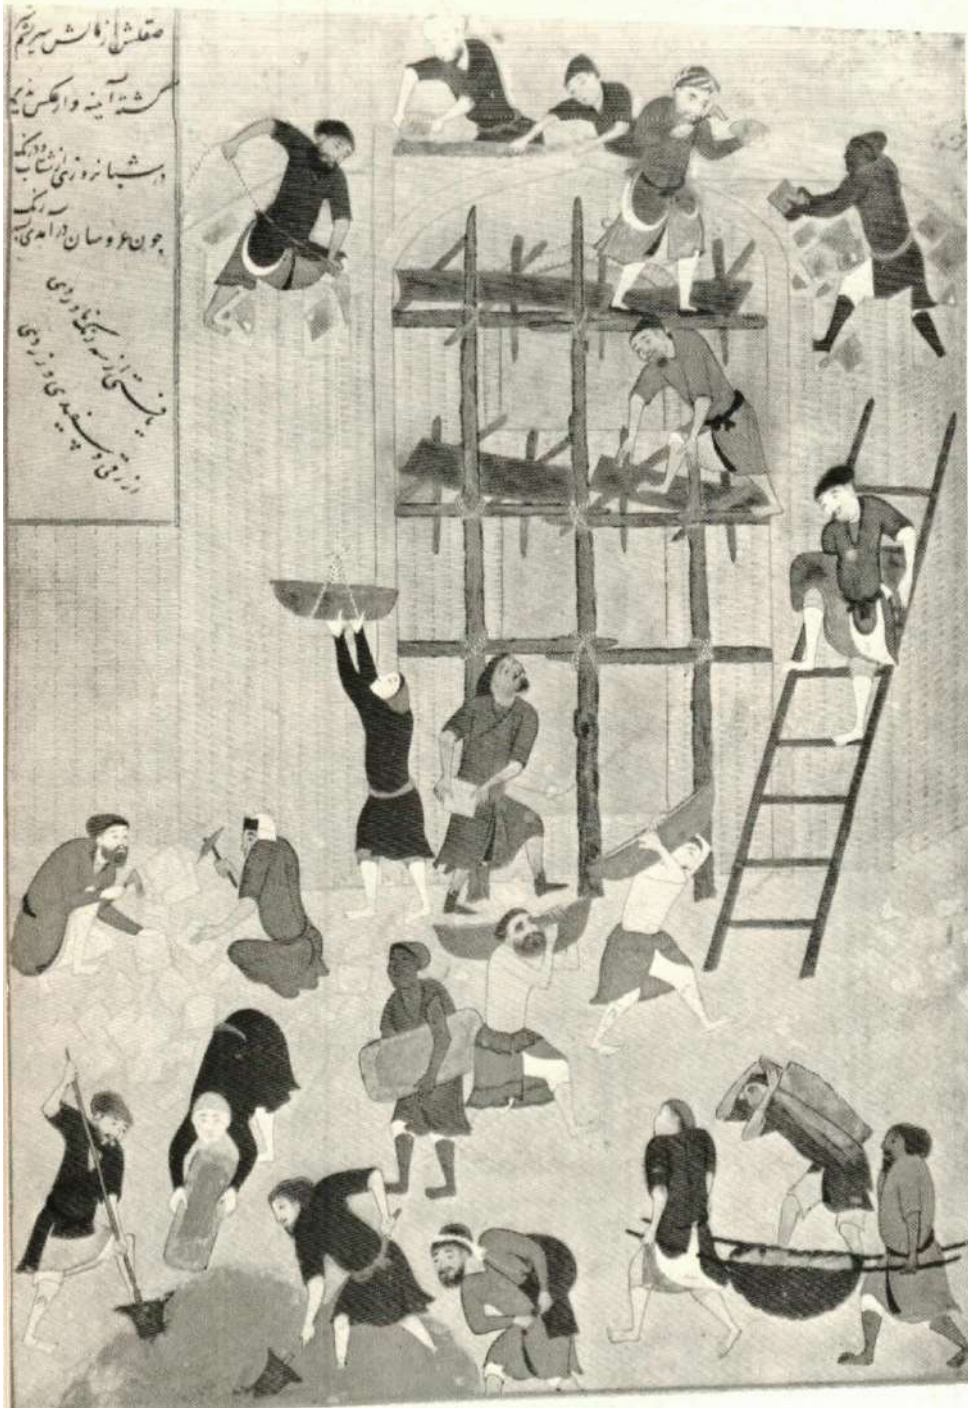 صقلش از مالش سریشم
کشته آینه وار عکس پذیر
در شبانروزی از شتاب و درنک
جون عروسان در آمدی بسه رنک
یافتی از سه رنک ناوردی
ازرقی و سفیدی و زردی